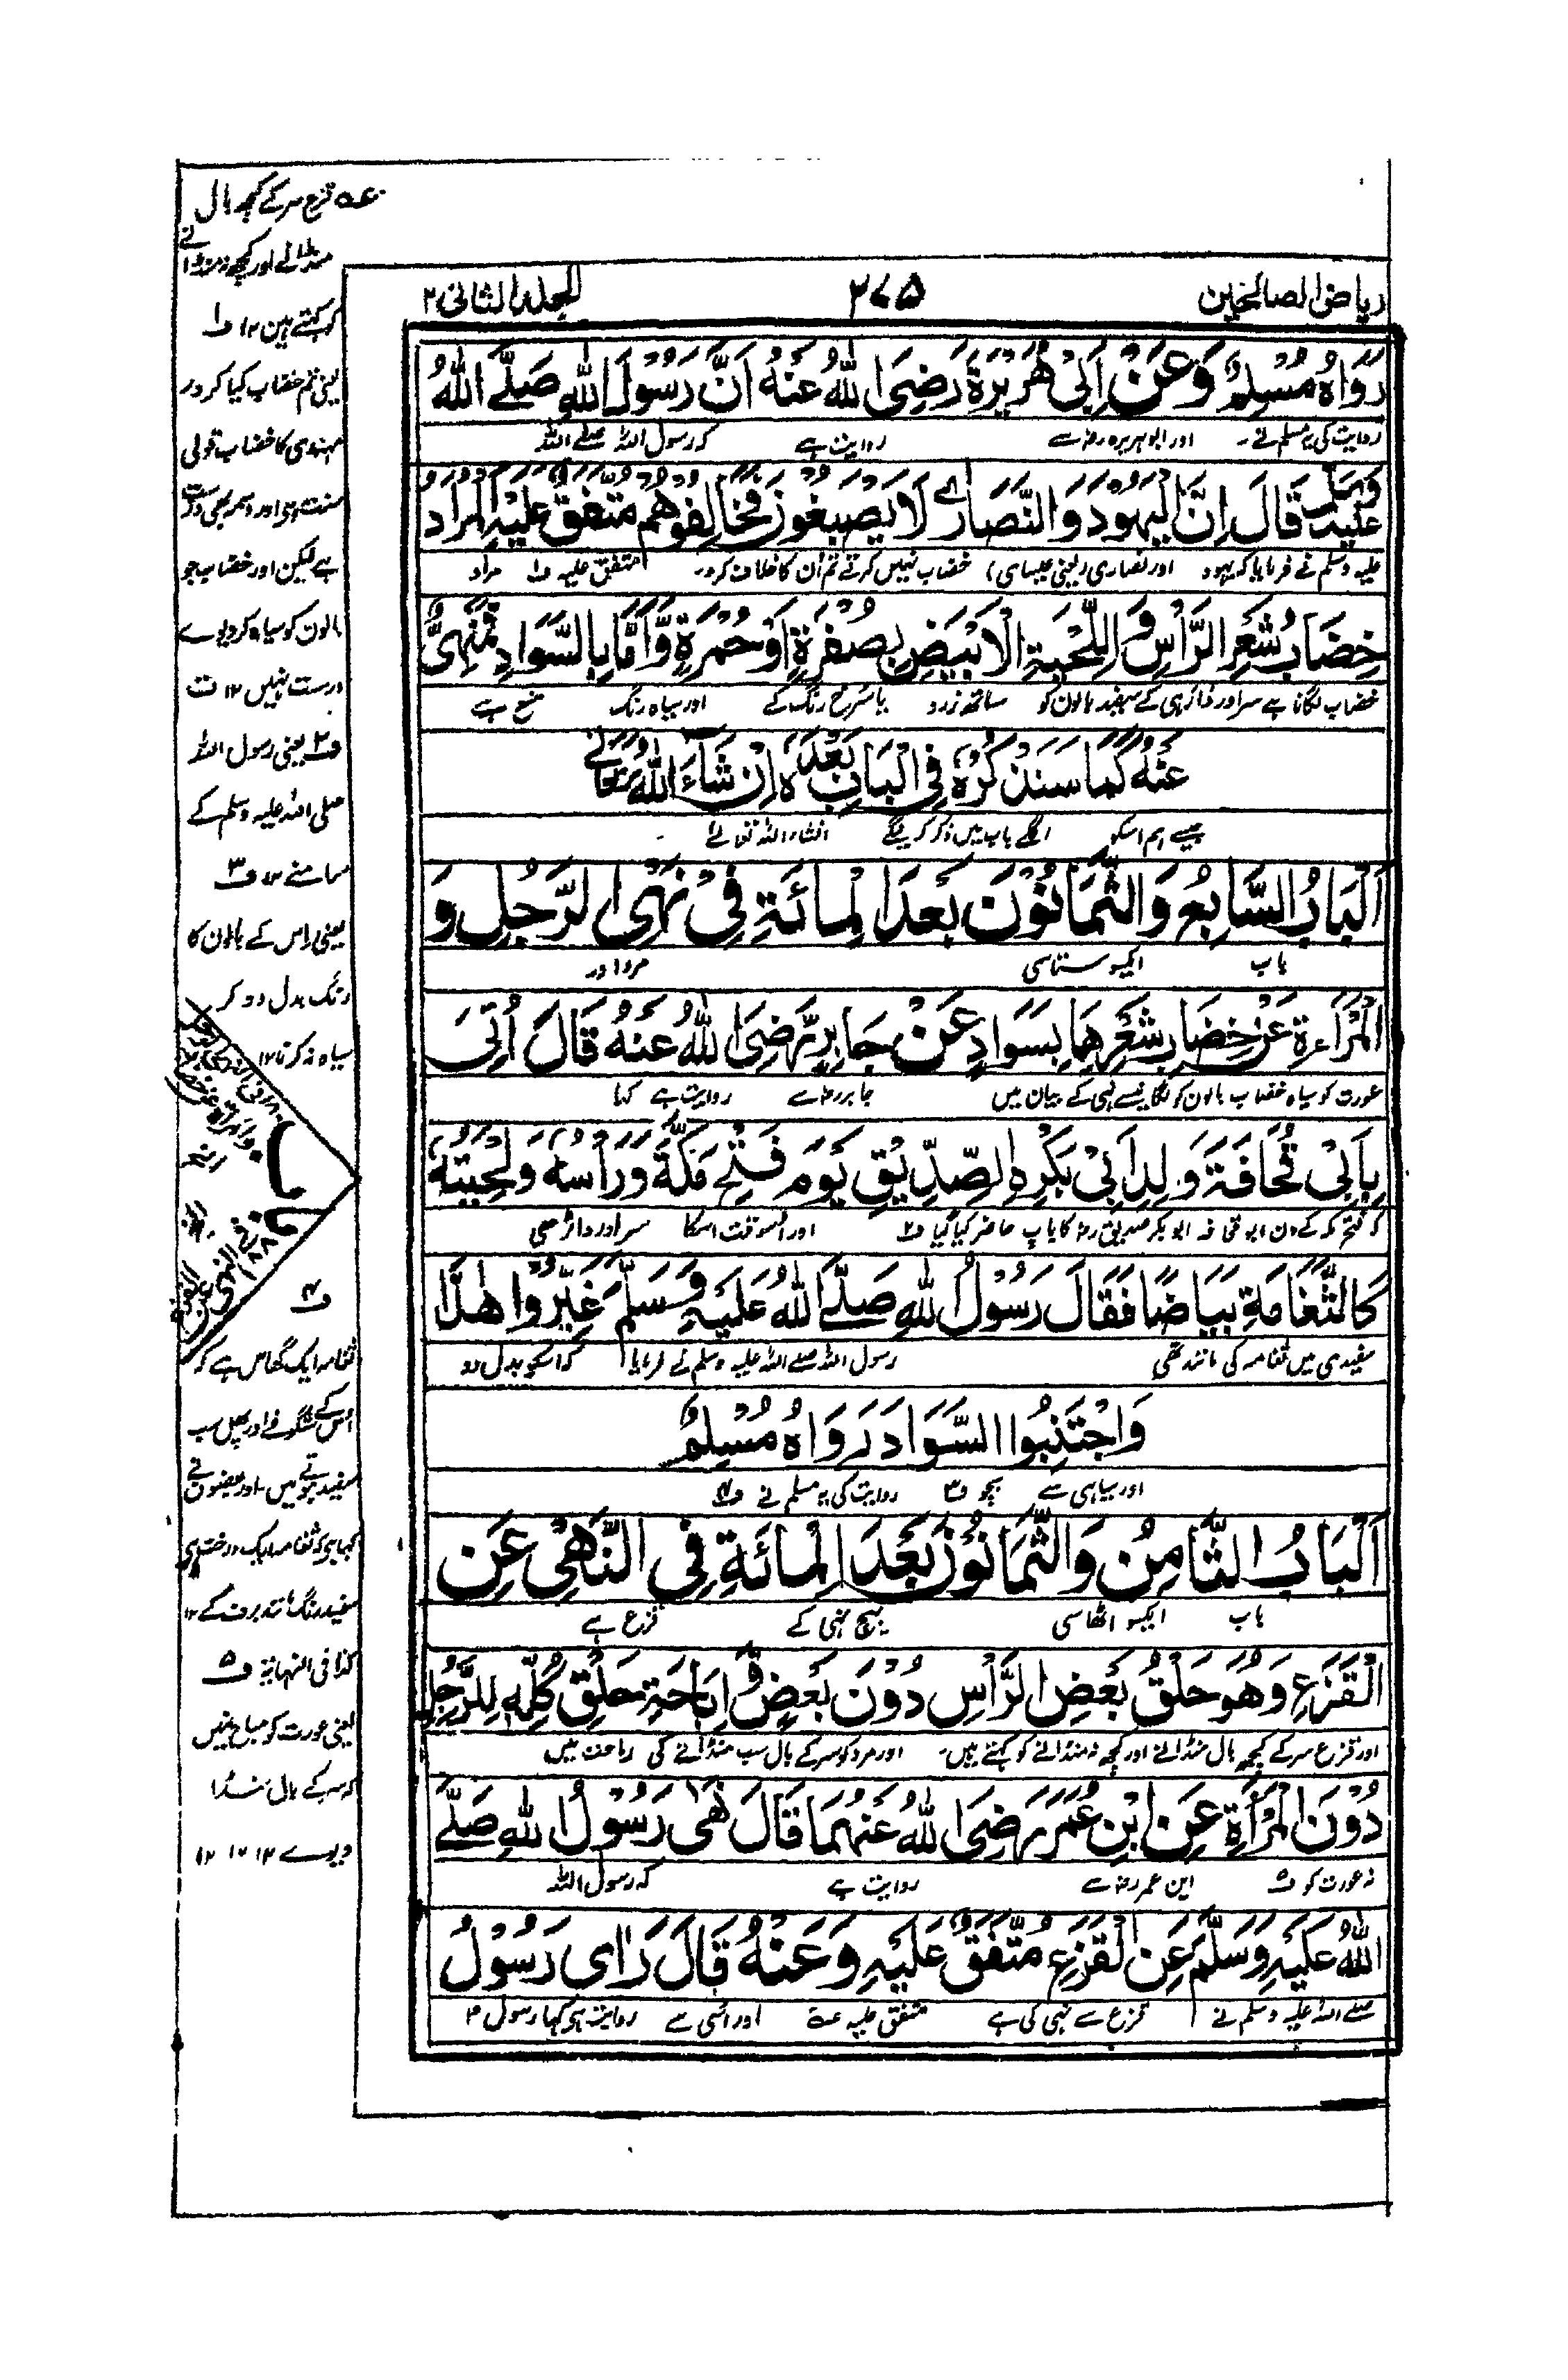 رياض الصالحين
٣٧٥
الجلد الثانی ٢
رَوَاهُ مُسْلِمٌ وَعَنْ اَبِیْ هُرَيْرَةَ رَضِیَ اللهُ عَنْهُ اَنَّ رَسُوْلَ اللهِ صَلَّے اللهُ
روایت کی یہ مسلم نے۔ اور ابوہریرہ رضہ سے روایت ہے کہ رسول اللہ صلے اللہ
عَلَيْهِ وَسَلَّمَ قَالَ اِنَّ الْيَهُوْدَ وَالنَّصَارٰے لَا يَصْبِغُوْنَ فَخَالِفُوْهُمْ مُتَّفَقٌ عَلَيْهِ الْمُرَادُ
علیہ وسلم نے فرمایا کہ یہود اور نصاری (یعنی عیسای) خضاب نہیں کرتے تم اُن کا خلاف کرو۔ متفق علیہ ف١ مراد
خِضَابُ شَعْرِ الرَّاْسِ وَ اللِّحْيَةِ الْاَبْيَضِ بِصُفْرَةٍ اَوْحُمْرَةٍ وَّاَمَّا بِالسَّوَادِ فَمَنْهِیٌّ
خضاب لگانا ہے سر اور ڈاڑہی کے سپید بالون کو ساتھ زرد یا سرخ رنگ کے اور سیاہ رنگ منع ہے
عَنْهُ كَمَا سَنَذْكُرُهُ فِی الْبَابِ بَعْدَهُ اِنْ شَآءَ اللهُ تَعَالٰے
جیسے ہم اسکو اگلے باب میں ذکر کرینگے انشاء اللہ تعالےٰ
اَلْبَابُ السَّابِعُ وَالثَّمَانُوْنَ بَعْدَ الْمِائَةِ فِیْ نَهْیِ الرَّجُلِ وَ
باب ایکسو ستاسی مرد اور
الْمَرْاَةِ عَنْ خِضَابِ شَعْرِهِمَا بِسَوَادٍ عَنْ جَابِرٍ رَّضِیَ اللهُ عَنْهُ قَالَ اُتِیَ
عورت کو سیاہ خضاب بالون کو لگانیسے نہی کے بیان میں جابر رضہ سے روایت ہے کہا
بِاَبِیْ قُحَافَةَ وَالِدِ اَبِیْ بَكْرِ الصِّدِّيْقِ يَوْمَ فَتْحِ مَكَّةَ وَرَاْسُهُ وَلِحْيَتُهُ
کہ فتح مکہ کے دن ابو قحافہ ابوبکر صدیق رضہ کا باپ حاضر کیا گیا ف٢ اور اسوقت اسکا سر اور داڑھی
كَالثَّغَامَةِ بَيَاضًا فَقَالَ رَسُوْلُ اللهِ صَلَّے اللهُ عَلَيْهِ وَسَلَّمَ غَيِّرُوْا هٰذَا
سفیدی میں ثغامہ کی مانند تھی رسول اللہ صلے اللہ علیہ وسلم نے فرمایا کہ اسکو بدل دو
وَاجْتَنِبُوا السَّوَادَ رَوَاهُ مُسْلِمٌ
اور سیاہی سے بچو ف٣ روایت کی یہ مسلم نے ف٤
اَلْبَابُ الثَّامِنُ وَالثَّمَانُوْنَ بَعْدَ الْمِائَةِ فِی النَّهْیِ عَنِ
باب ایکسو اٹھاسی بیچ نہی کے قزع ہے
الْقَزَعِ وَهُوَ حَلْقُ بَعْضِ الرَّاْسِ دُوْنَ بَعْضٍ وَ اِبَاحَةِ حَلْقِ كُلِّهِ لِلرَّجُلِ
اور قزع سر کے کچھ بال منڈانے اور کچھ نہ منڈانے کو کہتے ہیں۔ اور مرد کو سر کے بال سب منڈانے کی اباحت میں
دُوْنَ الْمَرْاَةِ عَنِ ابْنِ عُمَرَ رَضِیَ اللهُ عَنْهُمَا قَالَ نَهٰی رَسُوْلُ اللهِ صَلَّے
نہ عورت کو ف٥ ابن عمر رضہ سے روایت ہے کہ رسول اللہ
اللهُ عَلَيْهِ وَسَلَّمَ عَنِ الْقَزَعِ مُتَّفَقٌ عَلَيْهِ وَعَنْهُ قَالَ رَاٰی رَسُوْلُ
صلے اللہ علیہ وسلم نے قزع سے نہی کی ہے متفق علیہ عہ اور اسی سے روایت ہی کہا رسول
عہ قزع سر کے کچھ بال
منڈانے اور کچھ نہ منڈوانے
کو کہتے ہین ١٢ ف١
یعنی تم خضاب کیا کرو۔
مہندی کا خضاب تو لی
سنت ہی اور وسمہ بھی درست
ہے لیکن اور خضاب جو
بالون کو سیاہ کر دیوے
درست نہیں ١٢ ت
ف٢ یعنی رسول اللہ
صلی اللہ علیہ وسلم کے
سامنے ١٢ ف٣
یعنی اس کے بالون کا
رنگ بدل دو کر
سیاہ نہ کرنا ١٢
ف٤
ثغامہ ایک گھاس ہے کہ
اُس کے شگوفے اور پھل سب
سفید ہوتے ہیں۔ اور بعضون نے
کہا ہی کہ ثغامہ ایک درخت ہی
سفید رنگ مانند برف کے ١٢
کذا فی النہایۃ ف٥
یعنی عورت کو مباح نہیں
کہ سر کے بال منڈا
دیوے ١٢ ١٢ ١٢